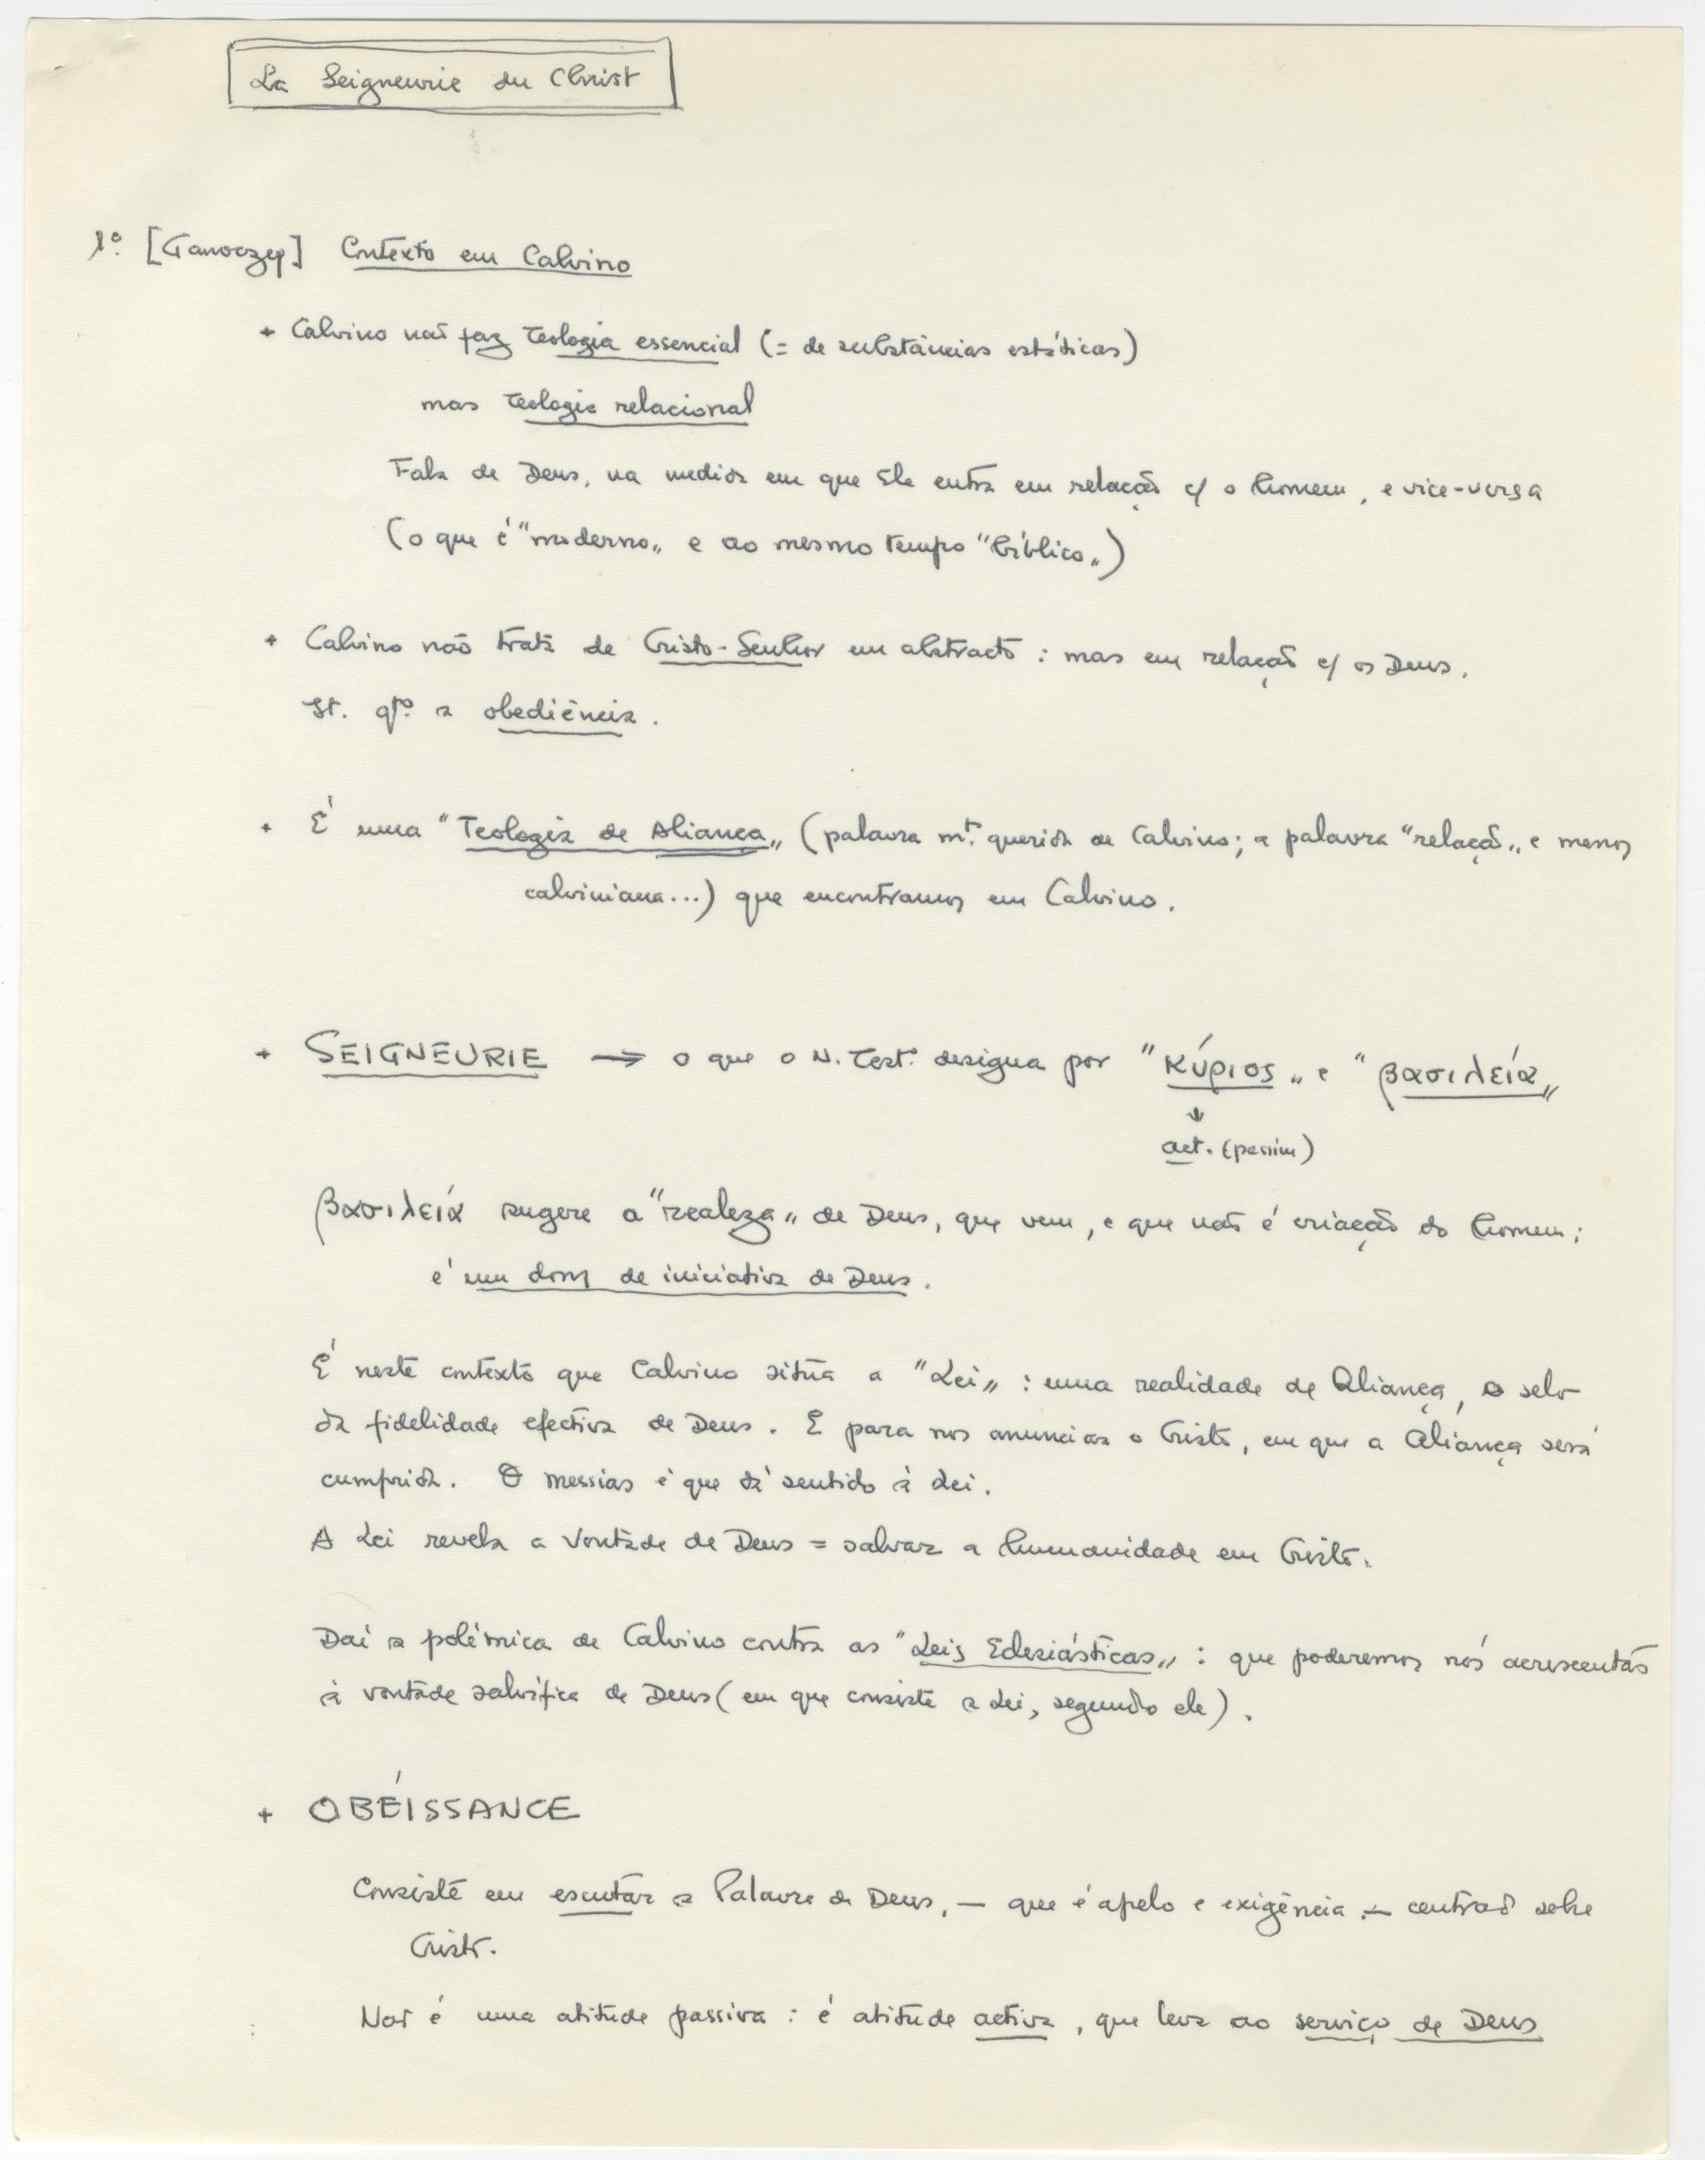 La Seigneurie du Christ
1º. [Ganoczy] Contexto em Calvino
+ Calvino não faz Teologia essencial (= de substâncias estáticas)
mas Teologia relacional
Fala de Deus, na medida em que Ele entra em relação c/ o homem, e vice-versa
(o que é "moderno" e ao mesmo tempo "bíblico")
+ Calvino não trata de Cristo-Senhor em abstracto : mas em relação c/ os Deus.
St. qtº a obediência.
+ É uma "Teologia de Aliança" (palavra mt. querida de Calvino; a palavra "relação" é menos
calviniana...) que encontramos em Calvino.
+ SEIGNEURIE → o que o N. Test. designa por "Κύριος" e "βασιλεία"
↓
act. (passim)
βασιλεία sugere a "realeza" de Deus, que vem, e que não é criação do homem;
é um dom de iniciativa de Deus.
É neste contexto que Calvino situa a "Lei" : uma realidade de Aliança, o selo
da fidelidade efectiva de Deus. E para nos anunciar o Cristo, em que a Aliança será
cumprida. O Messias é que dá sentido à Lei.
A Lei revela a Vontade de Deus = salvar a humanidade em Cristo.
Daí a polémica de Calvino contra as "Leis Eclesiásticas" : que poderemos nós acrescentar
à vontade salvífica de Deus (em que consiste a Lei, segundo ele).
+ OBÉISSANCE
Consiste em escutar a Palavra de Deus, — que é apelo e exigência — centrado sobre
Cristo.
Não é uma atitude passiva : é atitude activa, que leva ao serviço de Deus